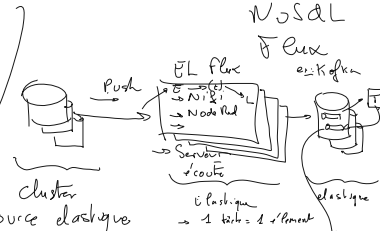 NoSQL
Flux
ex: Kafka
EL flux
Push
E → (t) → L
→ NiFi
→ Node Red
→
→ Serveur
écoute
cluster
source elastique
Elastique
→ 1 tâche = 1 élément
elastique
T